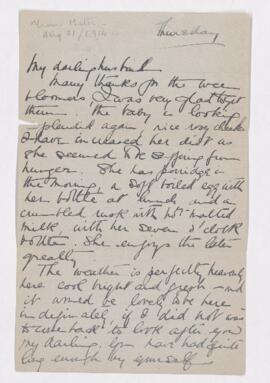 Aug 21/1914
Thursday
My darling husband
Many thanks for the wee
bloomers I was very glad to get
them. The baby is looking
splendid again, nice rosy cheeks
I have increased her diet as
she seemed to be suffering from
hunger. She has porridge in
the morning, a soft boiled egg with
her bottle at lunch and a
crumbled rusk with hot malted
milk, with her seven o'clock
bottle. She enjoys the latter
greatly
The weather is perfectly heavenly
here cool bright and fresh - and
it would be lovely to be here
indefinitely, if I did not
to come back to look after you
my darling. You have had quite
long enough by yourself